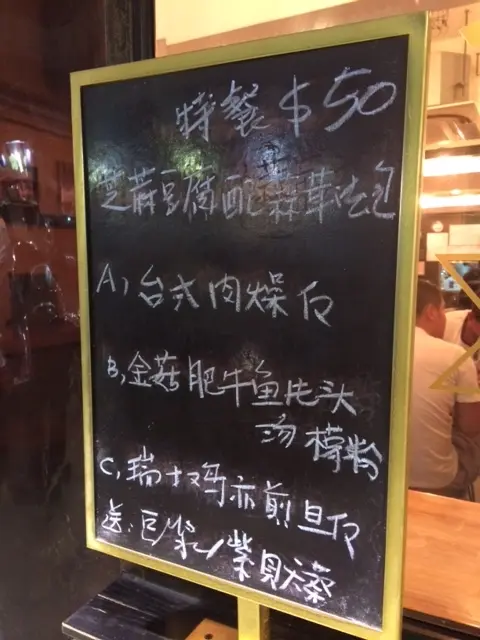 特餐 $50
芝蔴豆腐配蒜茸法包
A, 台式肉燥反
B, 金菇肥牛鱼片头
汤 檬粉
C, 瑞士鸡亦煎旦反
送: 豆浆/紫貝天葵